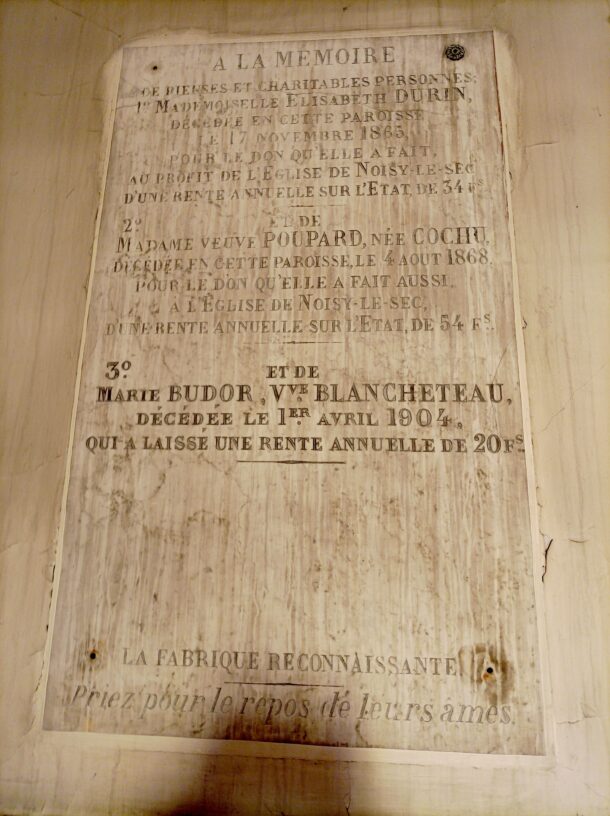 A LA MÉMOIRE
DE PIEUSES ET CHARITABLES PERSONNES;
1º MADEMOISELLE ELISABETH DURIN,
DÉCÉDÉE EN CETTE PAROISSE
LE 17 NOVEMBRE 1865,
POUR LE DON QU'ELLE A FAIT,
AU PROFIT DE L'ÉGLISE DE NOISY-LE-SEC,
D'UNE RENTE ANNUELLE SUR L'ETAT, DE 34 FS.
2º ET DE
MADAME VEUVE POUPARD, NÉE COCHU,
DÉCÉDÉE EN CETTE PAROISSE, LE 4 AOUT 1868,
POUR LE DON QU'ELLE A FAIT AUSSI,
A L'ÉGLISE DE NOISY-LE-SEC,
D'UNE RENTE ANNUELLE SUR L'ETAT, DE 54 FS.
3º ET DE
MARIE BUDOR, VVE BLANCHETEAU,
DÉCÉDÉE LE 1ER AVRIL 1904,
QUI A LAISSÉ UNE RENTE ANNUELLE DE 20 FS.
LA FABRIQUE RECONNAISSANTE
Priez pour le repos de leurs âmes.